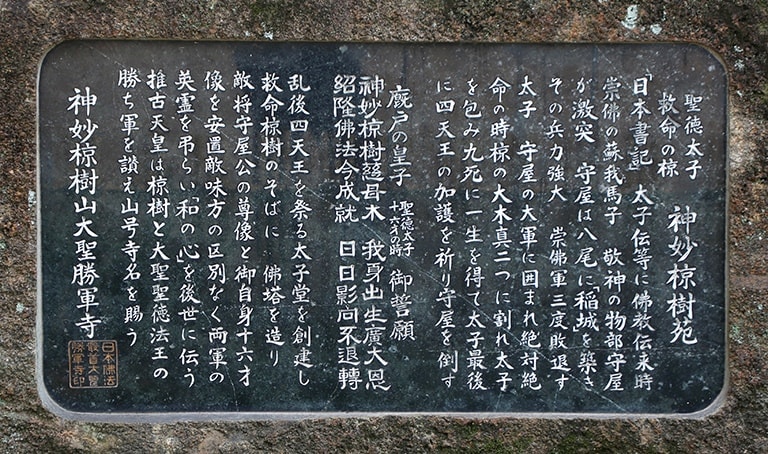 聖徳太子
救命の椋
神妙椋樹苑
「日本書記」 太子伝等に佛教伝来時
崇佛の蘇我馬子 敬神の物部守屋
が激突 守屋は八尾に「稲城」を築き
その兵力強大 崇佛軍三度敗退す
太子 守屋の大軍に囲まれ絶対絶
命の時椋の大木真二つに割れ太子
を包み九死に一生を得て太子最後
に四天王の加護を祈り守屋を倒す
厩戸の皇子 聖徳太子
十六才の時 御誓願
神妙椋樹蓊母木 我身出生廣大恩
紹隆佛法今成就 日日影向不退轉
乱後四天王を祭る太子堂を創建し
救命椋樹のそばに 佛塔を造り
敵将守屋公の尊像と御自身十六才
像を安置敵味方の区別なく両軍の
英霊を弔らい「和の心」を後世に伝う
推古天皇は椋樹と大聖聖徳法王の
勝ち軍を讃え山号寺名を賜う
神妙椋樹山大聖勝軍寺